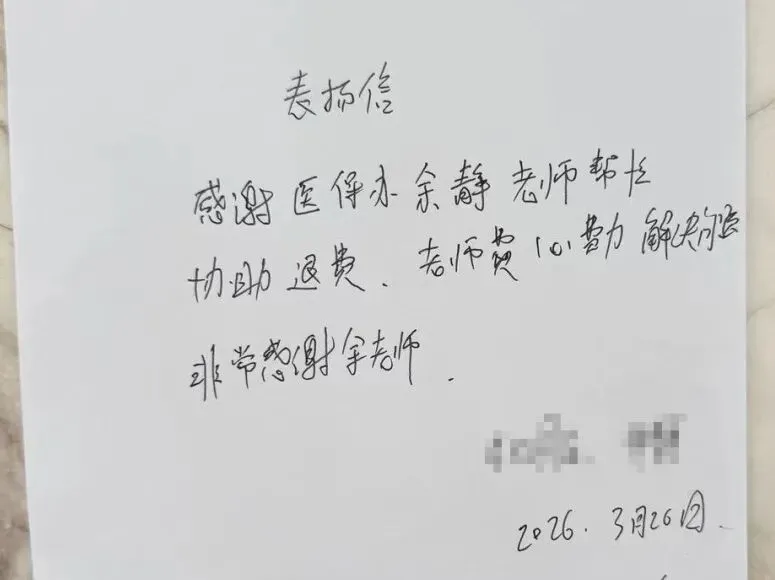 表扬信
感谢医保办余静老师帮忙
协助退费、老师费心费力解决问题
非常感谢余老师.
2026.3月26日.